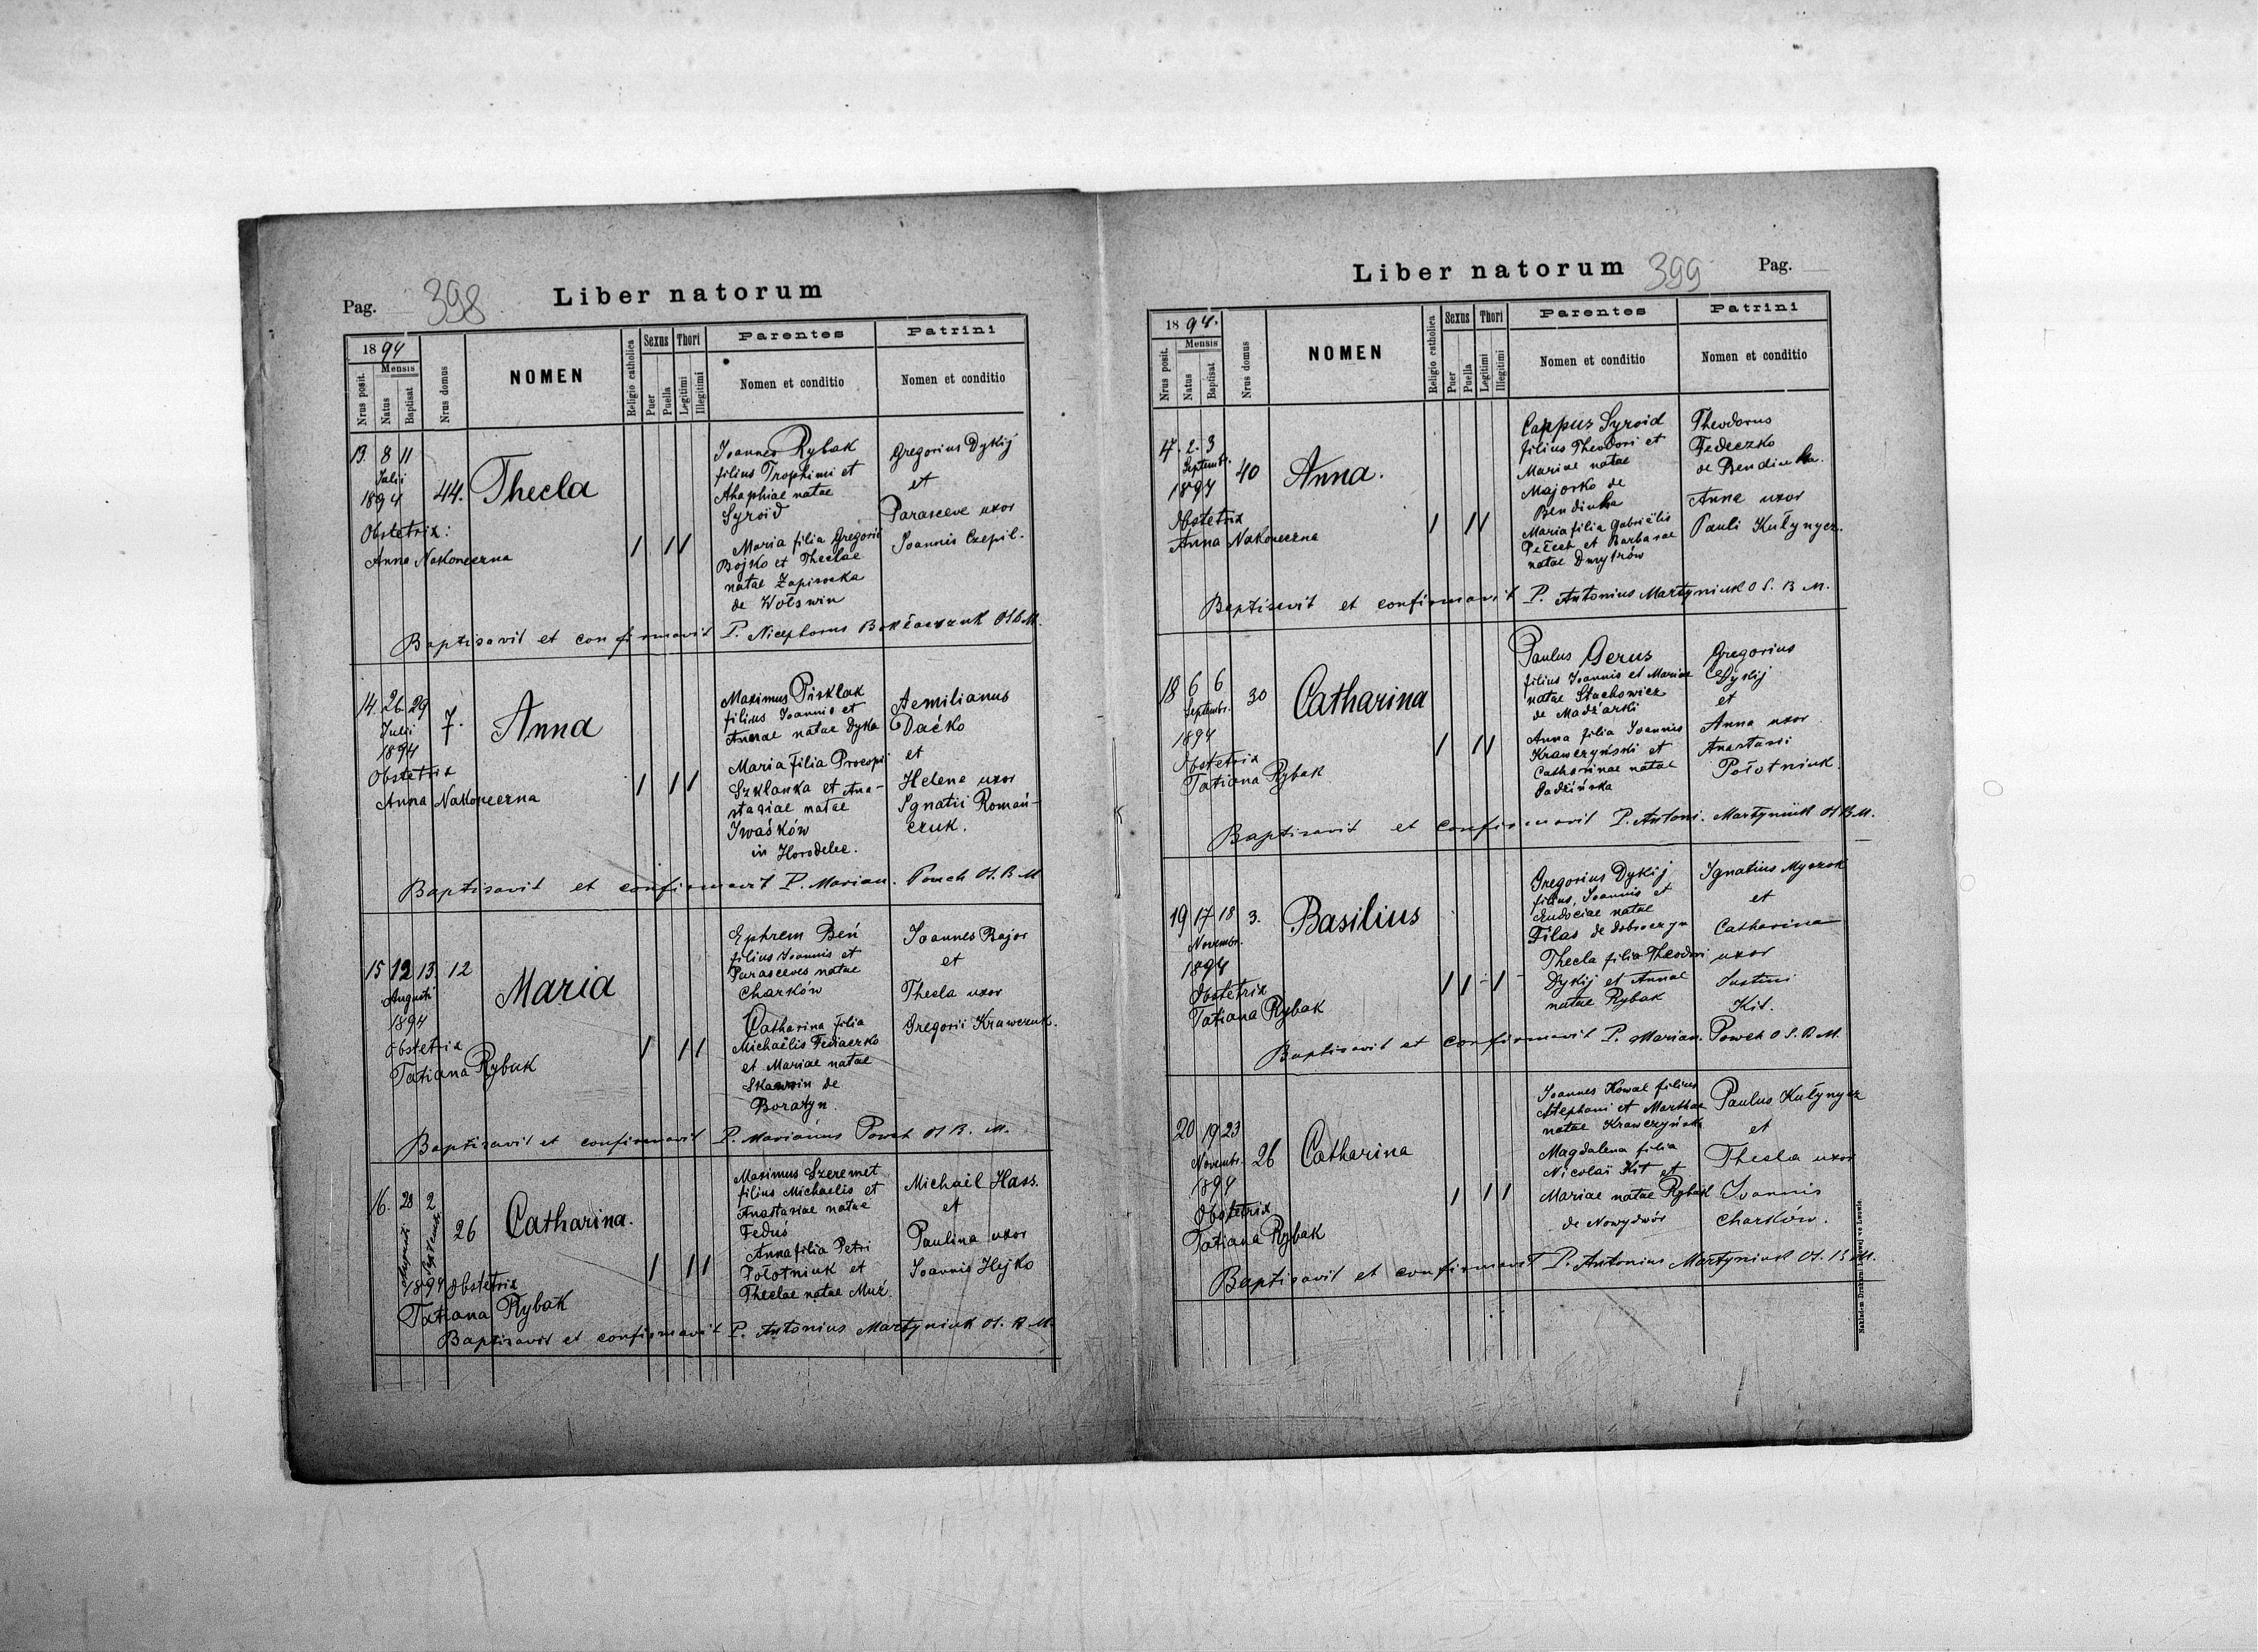 Pag. 398 Liber natorum
1894
Mensis
Nrus posit.
Natus
Baptisat
Nrus domus
NOMEN
Religio catholica
Sexus
Puer
Puella
Thori
Legitimi
Illegitimi
Parentes
Nomen et conditio
Patrini
Nomen et conditio
13. 8 11
Julii
1894
44. Thecla
Obstetrix:
Anna Nakoneczna
Joannes Rybak
filius Trophimi et
Ahaphiae natae
Syroid
Maria filia Gregorii
Bojko et Theclae
natae
de Wołswin
Gregorius Dykij
et
Parasceve uxor
Joannis Czepil.
Baptisavit et confirmavit P. Nicephorus
14. 26. 29
Julii
1894
7. Anna
Obstetrix
Anna Nakoneczna
Maximus Pisklak
filius Joannis et
Annae natae Dyka
Maria filia Procopii
Szklanka et Ana-
stasiae natae
Iwaśków
in Horodelec.
Aemilianus
Daćko
et
Helene uxor
Ignatii Romań-
czuk.
Baptisavit et confirmavit P. Marian. Powch O.S.B.M
15 12 13. 12
Augusti
1894
Maria
Obstetrix
Tatiana Rybak
Ephrem Beń
filius Joannis et
Parasceves natae
Charków
Catharina filia
Michaëlis Fediaczko
et Mariae natae
de
Boratyn.
Joannes Bajor
et
Thecla uxor
Gregorii Krawczuk.
Baptisavit et confirmavit P. Marianus Powch O.S.B.M.
16. 28 2
Augusti
Septembr.
26 Catharina.
1894 Obstetrix
Tatiana Rybak
Maximus Szeremet
filius Michaelis et
Anastasiae natae
Feduś
Anna filia Petri
Połotniuk et
Theclae natae
Michail Hass.
et
Paulina uxor
Joannis Hejko
Baptisavit et confirmavit P. Antonius Martyniuk O.S.B.M.
Liber natorum 399 Pag.
1894.
Mensis
Nrus posit.
Natus
Baptisat
Nrus domus
NOMEN
Religio catholica
Sexus
Puer
Puella
Thori
Legitimi
Illegitimi
Parentes
Nomen et conditio
Patrini
Nomen et conditio
17. 2. 3
Septembr.
1894
40 Anna.
Obstetrix
Anna Nakoneczna
Syroid
filius Theodori et
Mariae natae
Majorko de
Bendiucha
Maria filia Gabriëlis
et Barbarae
natae Dmytrów
Theodorus
Fedeczko
de Bendiucha.
Anna uxor
Pauli Kułynycz.
Baptisavit et confirmavit P. Antonius Martyniuk O S. B M.
18 6 6
Septembr.
1894
30 Catharina
Obstetrix
Tatiana Rybak
Paulus Gerus
filius Joannis et Mariae
natae Stachowicz
de Madżarki
Anna filia Joannis
Krawczyński et
Catharinae natae
Gregorius
Dykij
et
Anna uxor
Anastasii
Połotniuk.
Baptisavit et confirmavit P. Antoni. Martyniuk O.S.B.M.
19 17 18 3. Basilius
Novembr.
1894
Obstetrix
Tatiana Rybak
Gregorius Dykij
filius Joannis et
Eudociae natae
Filas de Dobroczyn
Thecla filia Theodori
Dykij et Annae
natae Rybak
Ignatius
et
Catharina
uxor
Justini
Kit.
Baptisavit et confirmavit P. Marian. Powch O S. B M.
20 19 23
Novembr.
1894
26 Catharina
Obstetrix
Tatiana Rybak
Joannes Kowal filius
Stephani et Marthae
natae Krawczyńska
Magdalena filia
Nicolai Kit et
Mariae natae Rybak
de Nowydwór
Paulus Kułynycz
et
Thecla uxor
Joannis
Charków.
Baptisavit et confirmavit P. Antonius Martyniuk O.S.B.M.
Nakładem Drukarni Ludowej we Lwowie.